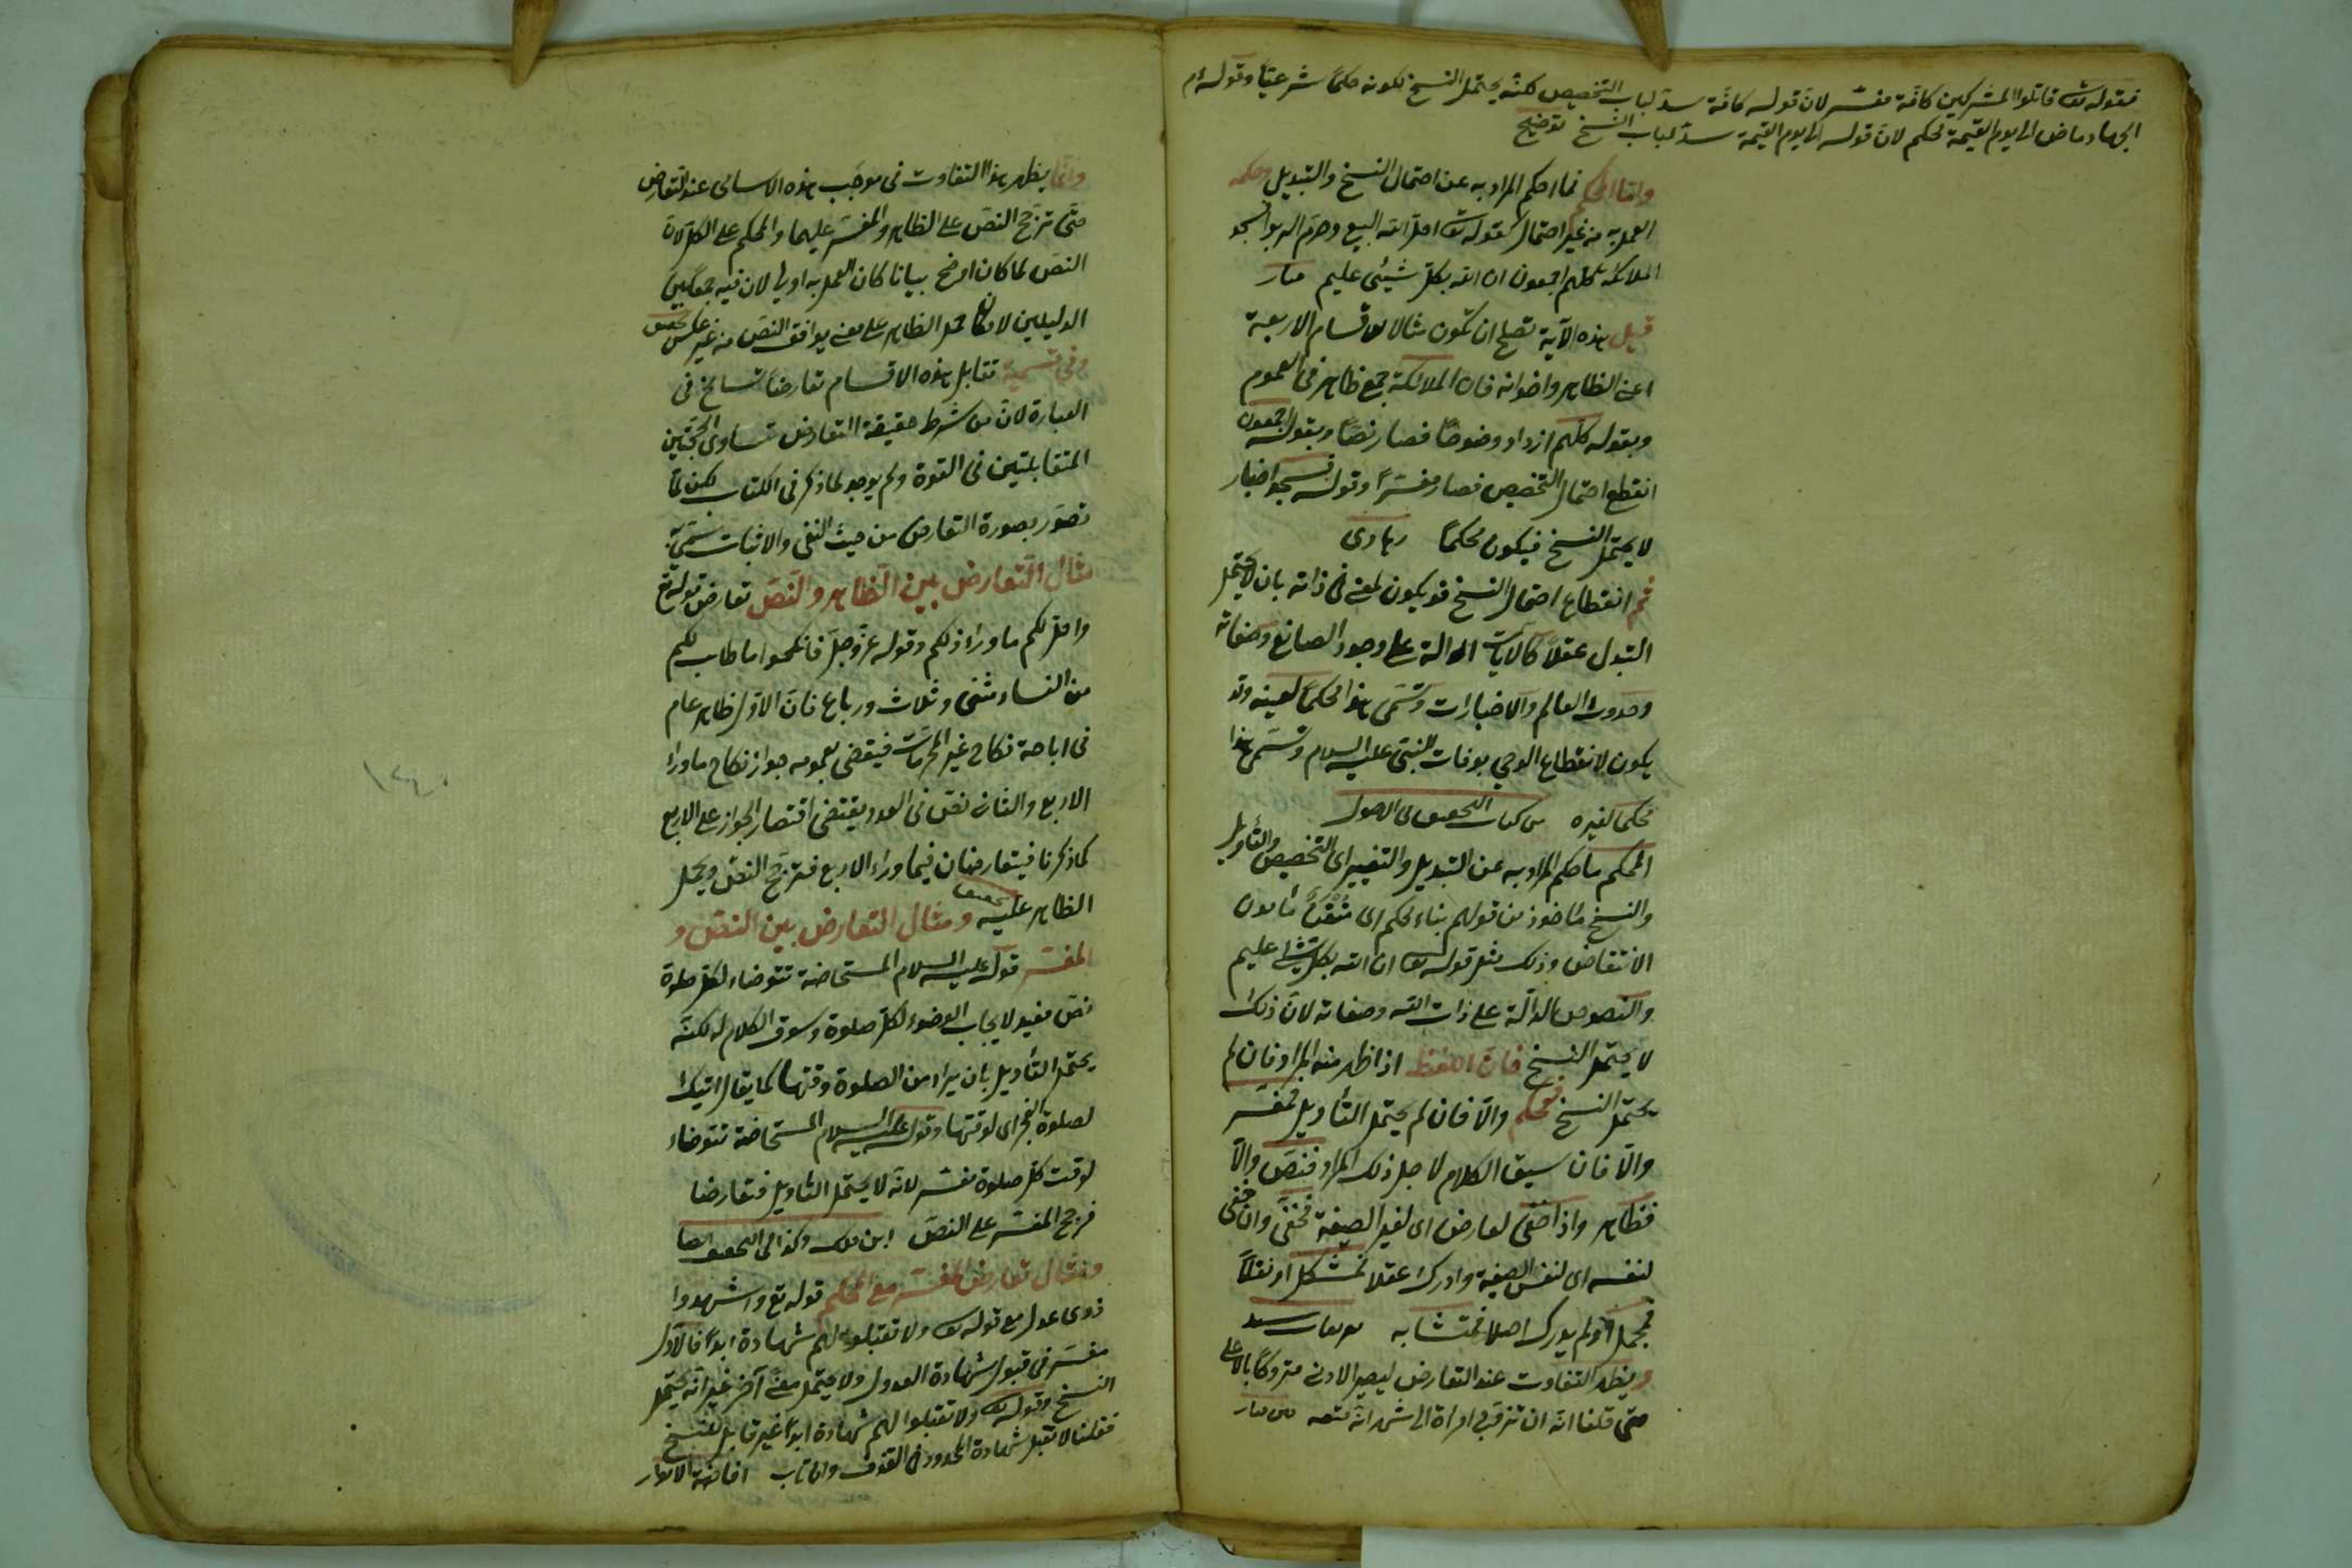 فقوله تعالى قاتلوا المشركين كافة مفسّر لانّ قوله كافّة سدّ لباب التخصيص لكنّه يحتمل النسخ لكونه حكمًا شرعيّا وقوله م
الجهاد ماض الى يوم القيمة محكم لانّ قوله الى يوم القيمة سدّ لباب النسخ توضيح
وامّا المحكم فما احكم المراد به عن احتمال النسخ والتبديل وحكمه
العمل به من غير احتمال كقوله تعالى احلّ الله البيع وحرّم الربوا فسجد
الملائكة كلهم اجمعون ان الله بكلّ شيئ عليم منار
قيل هذه الآية تصلح ان تكون مثالا للاقسام الاربعة
اعنى الظاهر واخواته فان الملائكة جمع ظاهر فى العموم
وبقوله كلّهم ازداد وضوحًا فصار نصّا وبقوله اجمعون
انقطع احتمال التخصيص فصار مفسّرًا وقوله فسجد اخبار
لا يحتمل النسخ فيكون محكمًا رهاوى
ثم انقطاع احتمال النسخ قد يكون لمعنى فى ذاته بان لا يحتمل
التبدل عقلاً كالايات الدالة على وجود الصانع وصفاته
وحدوث العالم والاخبارات وتسمّى هذا محكمًا لعينه وقد
يكون لانقطاع الوحي بوفات النبىّ عليه السلام وتسمّى هذا
محكما لغيره من كتاب التحقيق فى الاصول
المحكم ما احكم المراد به عن التبديل والتغيير اى التخصيص والتأويل
والنسخ مأخوذ من قولهم بناء محكم اى متقن مأمون
الانتقاض وذلك مثل قوله تعالى ان الله بكل شيئ عليم
والنصوص الدالّة على ذات الله وصفاته لانّ ذلك
لا يحتمل النسخ فانّ اللفظ اذا ظهر منه المراد فان لم
يحتمل النسخ فمحكم والّا فان لم يحتمل التأويل فمفسّر
والّا فان سيق الكلام لاجل ذلك المراد فنصّ والّا
فظاهر واذا خفى لعارض اى لغير الصيغة فخفىّ وان خفى
لنفسه اى لنفس الصيغة وادرك عقلا فمشكل او نقلًا
فمجمل او لم يدرك اصلا فمتشابه تعريفات سيد
ويظهر التفاوت عند التعارض ليصير الادنى متروكًا بالاعلى
حتى قلنا انّه ان تزوّج امراة الى شهر انّه متعه من منار
وانّما يظهر هذا التفاوت فى موجَب هذه الاسامى عند التعارض
حتّى ترجّح النصّ على الظاهر والمفسّر عليهما والمحكم على الكلّ لانّ
النصّ لما كان اوضح بيانا كان العمل به اولى لان فيه جمعا بين
الدليلين لامكان حمل الظاهر على معنى يوافق النصّ من غير عكس تحقيق
وفى تسمية تقابل هذه الاقسام تعارضا تسامح فى
العبارة لانّ من شرط حقيقة التعارض تساوى الحجّتين
المتقابلتين فى القوة ولم يوجد لما ذكر فى الكتاب لكن لمّا
تصوّر بصورة التعارض من حيث النفى والاثبات سمّى به
مثال التّعارض بين الظّاهر والنّصّ تعارض قوله تع
واحلّ لكم ما وراء ذلكم وقوله عزّ وجلّ فانكحوا ما طاب لكم
من النساء مثنى وثلاث ورباع فانّ الاوّل ظاهر عام
فى اباحة نكاح غير المحرّمات فيقضى بعمومه جواز نكاح ما وراء
الاربع والثانى نصّ فى العدد يقتضى اقتصار الجواز على الاربع
كما ذكرنا فيتعارضان فيما وراء الاربع فترجّح النصّ ويحمل
الظاهر عليه تحقيق ومثال التعارض بين النصّ و
المفسّر قوله عليه السلام المستحاضة تتوضاء لكلّ صلوة
نصّ مفيد لايجاب الوضوء لكلّ صلوة وسوق الكلام له لكنّه
يحتمل التأويل بان يراد من الصلوة وقتها كما يقال اتيك
لصلوة الفجر اى لوقتها وقوله عليه السلام المستحاضة تتوضاء
لوقت كلّ صلوة مفسّر لانّه لا يحتمل التأويل فتعارضا
فرجح المفسّر على النصّ ابن ملك وكذا فى التحقيق ايضا
ومثال تعارض المفسّر مع المحكم قوله تع واشهدوا
ذوى عدل مع قوله تعالى ولا تقبلوا لهم شهادة ابدًا فالاوّل
مفسّر فى قبول شهادة العدول ولا يحتمل معنًى آخر غير انّه يحتمل
النسخ وقوله تعالى ولا تقبلوا لهم شهادة ابدًا غير قابل للنسخ
فقلنا لا تقبل شهادة المحدود فى القذف وان تاب افاضة الانوار
١٢٤٠